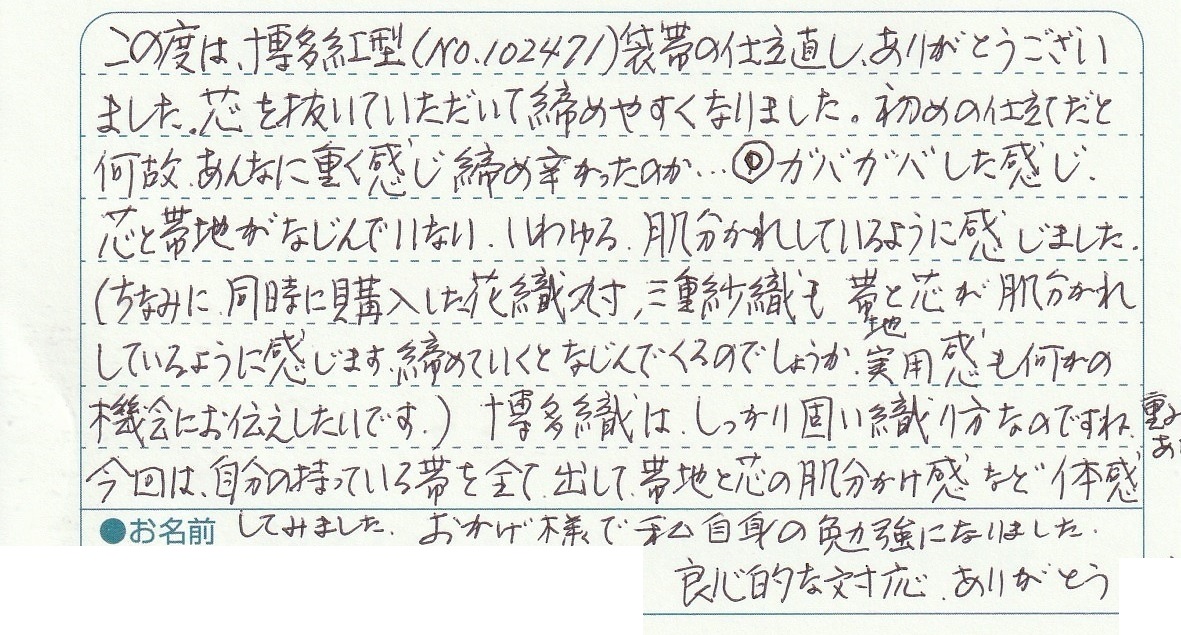 この度は、博多紅型(NO.102471)袋帯の仕立直し、ありがとうござい
ました。芯を抜いていただいて締めやすくなりました。初めの仕立てだと
何故、あんなに重く感じ締め辛かったのか…◎ガバガバした感じ、
芯と帯地がなじんでいない、いわゆる、肌分かれしているように感じました。
(ちなみに、同時に購入した花織、三重紗織も帯地と芯が肌分かれ
しているように感じます、締めていくとなじんでくるのでしょうか、実用感も何れの
機会にお伝えしたいです。) 博多織は、しっかり固い織り方なのですね、重み
あ
今回は、自分の持っている帯を全て出して、帯地と芯の肌分かけ感など体感
●お名前 してみました、おかげ様で私自身の勉強になりました。
良心的な対応、ありがとう